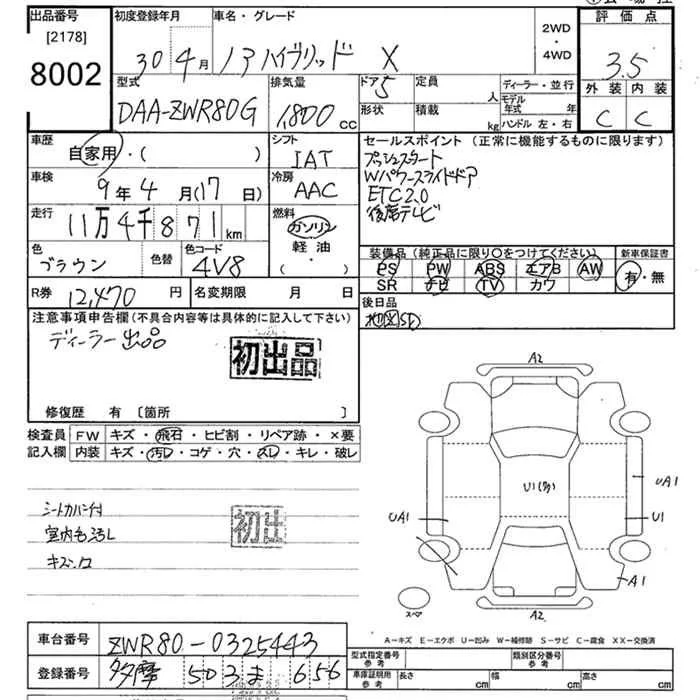 出品番号
[2178]
8002
初度登録年月
30年4月
車名・グレード
ノアハイブリッド X
2WD
・
4WD
評価点
3.5
外装 内装
C C
型式
DAA-ZWR80G
排気量
1,800cc
ドア 5
形状
定員 人
積載 kg
ディーラー・並行
モデル年式 年
ハンドル 左・右
車歴
自家用・( )
シフト
IAT
車検
9年4月(17日)
冷房
AAC
走行
11万4千871km
燃料
ガソリン
軽油・
( ・ )
色
ブラウン
色替
色コード
4V8
セールスポイント(正常に機能するものに限ります)
プッシュスタート
Wパワースライドドア
ETC2.0
後席テレビ
装備品(純正品に限り○をつけてください)
PS PW ABS エアB AW
SR ナビ TV カワ
新車保証書
有・無
R券 12,470円
名変期限 月 日
後日品
地図SD
注意事項申告欄(不具合内容等は具体的に記入して下さい)
ディーラー出品
初出品
修復歴 有 [箇所 ]
検査員記入欄
FW キズ・飛石・ヒビ割・リペア跡・×要
内装 キズ・汚レ・コゲ・穴・スレ・キレ・破レ
シートカバー付
室内色汚レ
キズ凹
初出
A2
U1(多)
UA1
U1
UA1
A1
A2
スペア
A-キズ E-エクボ U-凹み W-補修跡 S-サビ C-腐食 XX-交換済
車台番号 ZWR80-0325443
登録番号 多摩 503 ま 656
型式指定番号 参考
類別区分番号 参考
車庫証明用 参考
長さ cm 幅 cm 高さ cm